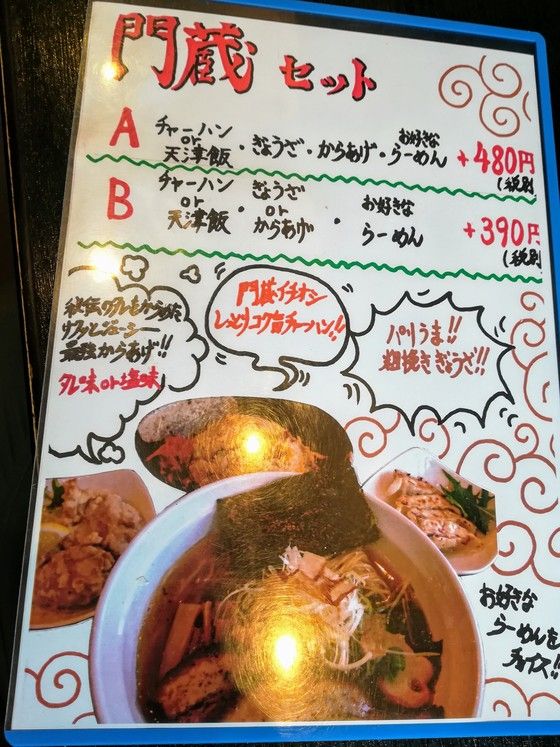 門蔵 セット
A チャーハン or 天津飯 ・ ぎょうざ ・ からあげ ・ お好きな らーめん +480円 (税別)
B チャーハン or 天津飯 ・ ぎょうざ or からあげ ・ お好きな らーめん +390円 (税別
秘伝のタレをからめた
サクッとジューシー
最強からあげ!!
タレ味 or 塩味
門蔵イチオシ
しっとりコク旨チャーハン!!
パリうま!!
粗挽きぎょうざ!!
お好きな
らーめんを
チョイス!!